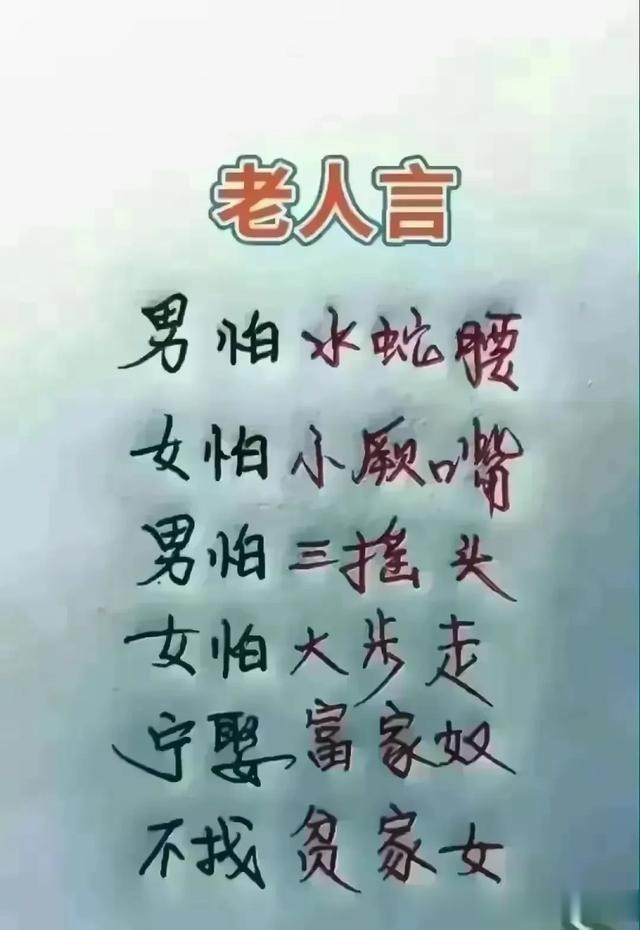 老人言
男怕水蛇腰
女怕小厥嘴
男怕三摇头
女怕大步走
宁娶富家奴
不找贫家女